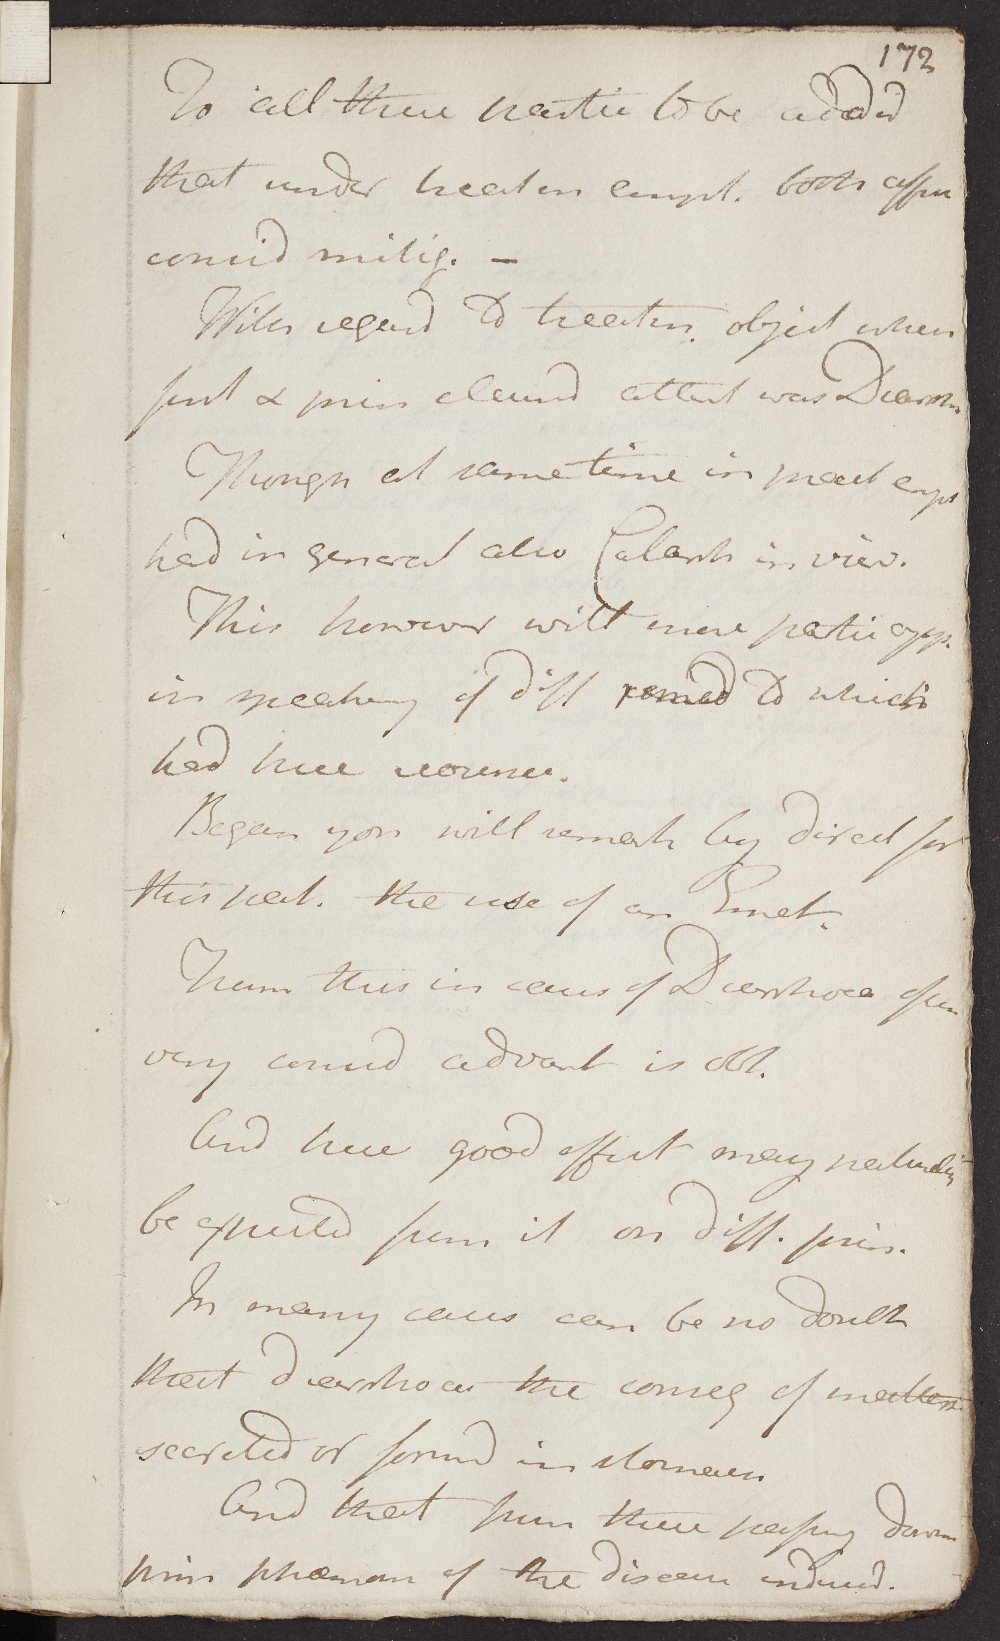 172
To all these partic to be added
that under treatm empl. both affec
consid mitig. —
With regard to treatm. object when
first & prin claim'd attent was Diarrh
Though at same time in pract empl
had in general also Catarrh in view.
This however will more partic app.
in speaking of diff remed to which
had here recourse.
Began you will remark by direct for
this pat. the use of an Emet.
From this in cases of Diarrhoea often
very consid advant is obt.
And here good effect may naturally
be expected from it on diff. prin.
In many cases can be no doubt
that diarrhoea the conseq of matters
secreted or form'd in stomach
And that from these passing down
prin phænom of the disease induced.